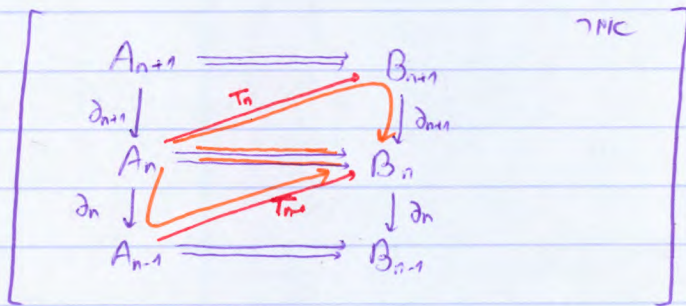 A_{n+1} B_{n+1}
∂_{n+1} T_n ∂_{n+1}
A_n B_n
∂_n T_{n-1} ∂_n
A_{n-1} B_{n-1}